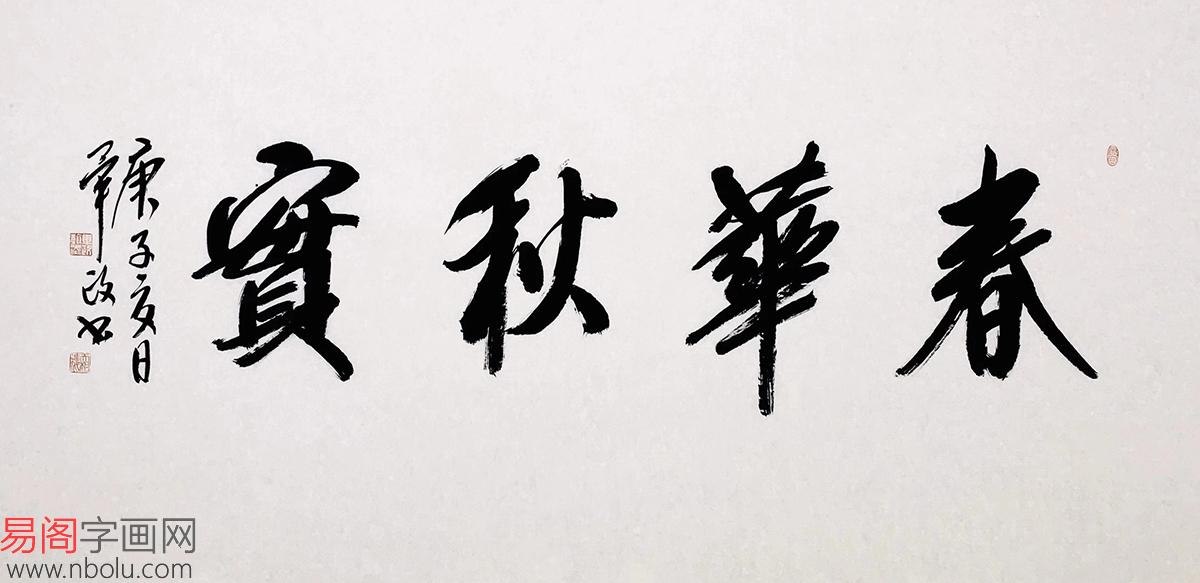 春華秋實
庚子亥日
肇政书
易阁字画网
www.nbolu.com